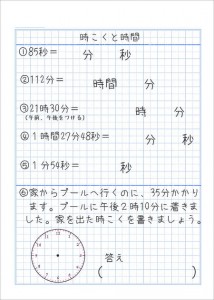 時こくと時間
①85秒＝　　分　　秒
②112分＝　　時間　　分
③21時30分＝　　時　　分
(午前、午後をつける)
④1時間27分48秒＝　　分　　秒
⑤1分54秒＝　　秒
⑥家からプールへ行くのに、35分かかり
ます。プールに午後2時10分に着きま
した。家を出た時こくを書きましょう。
12
1
2
3
4
5
6
7
8
9
10
11
答え
(　　　　)